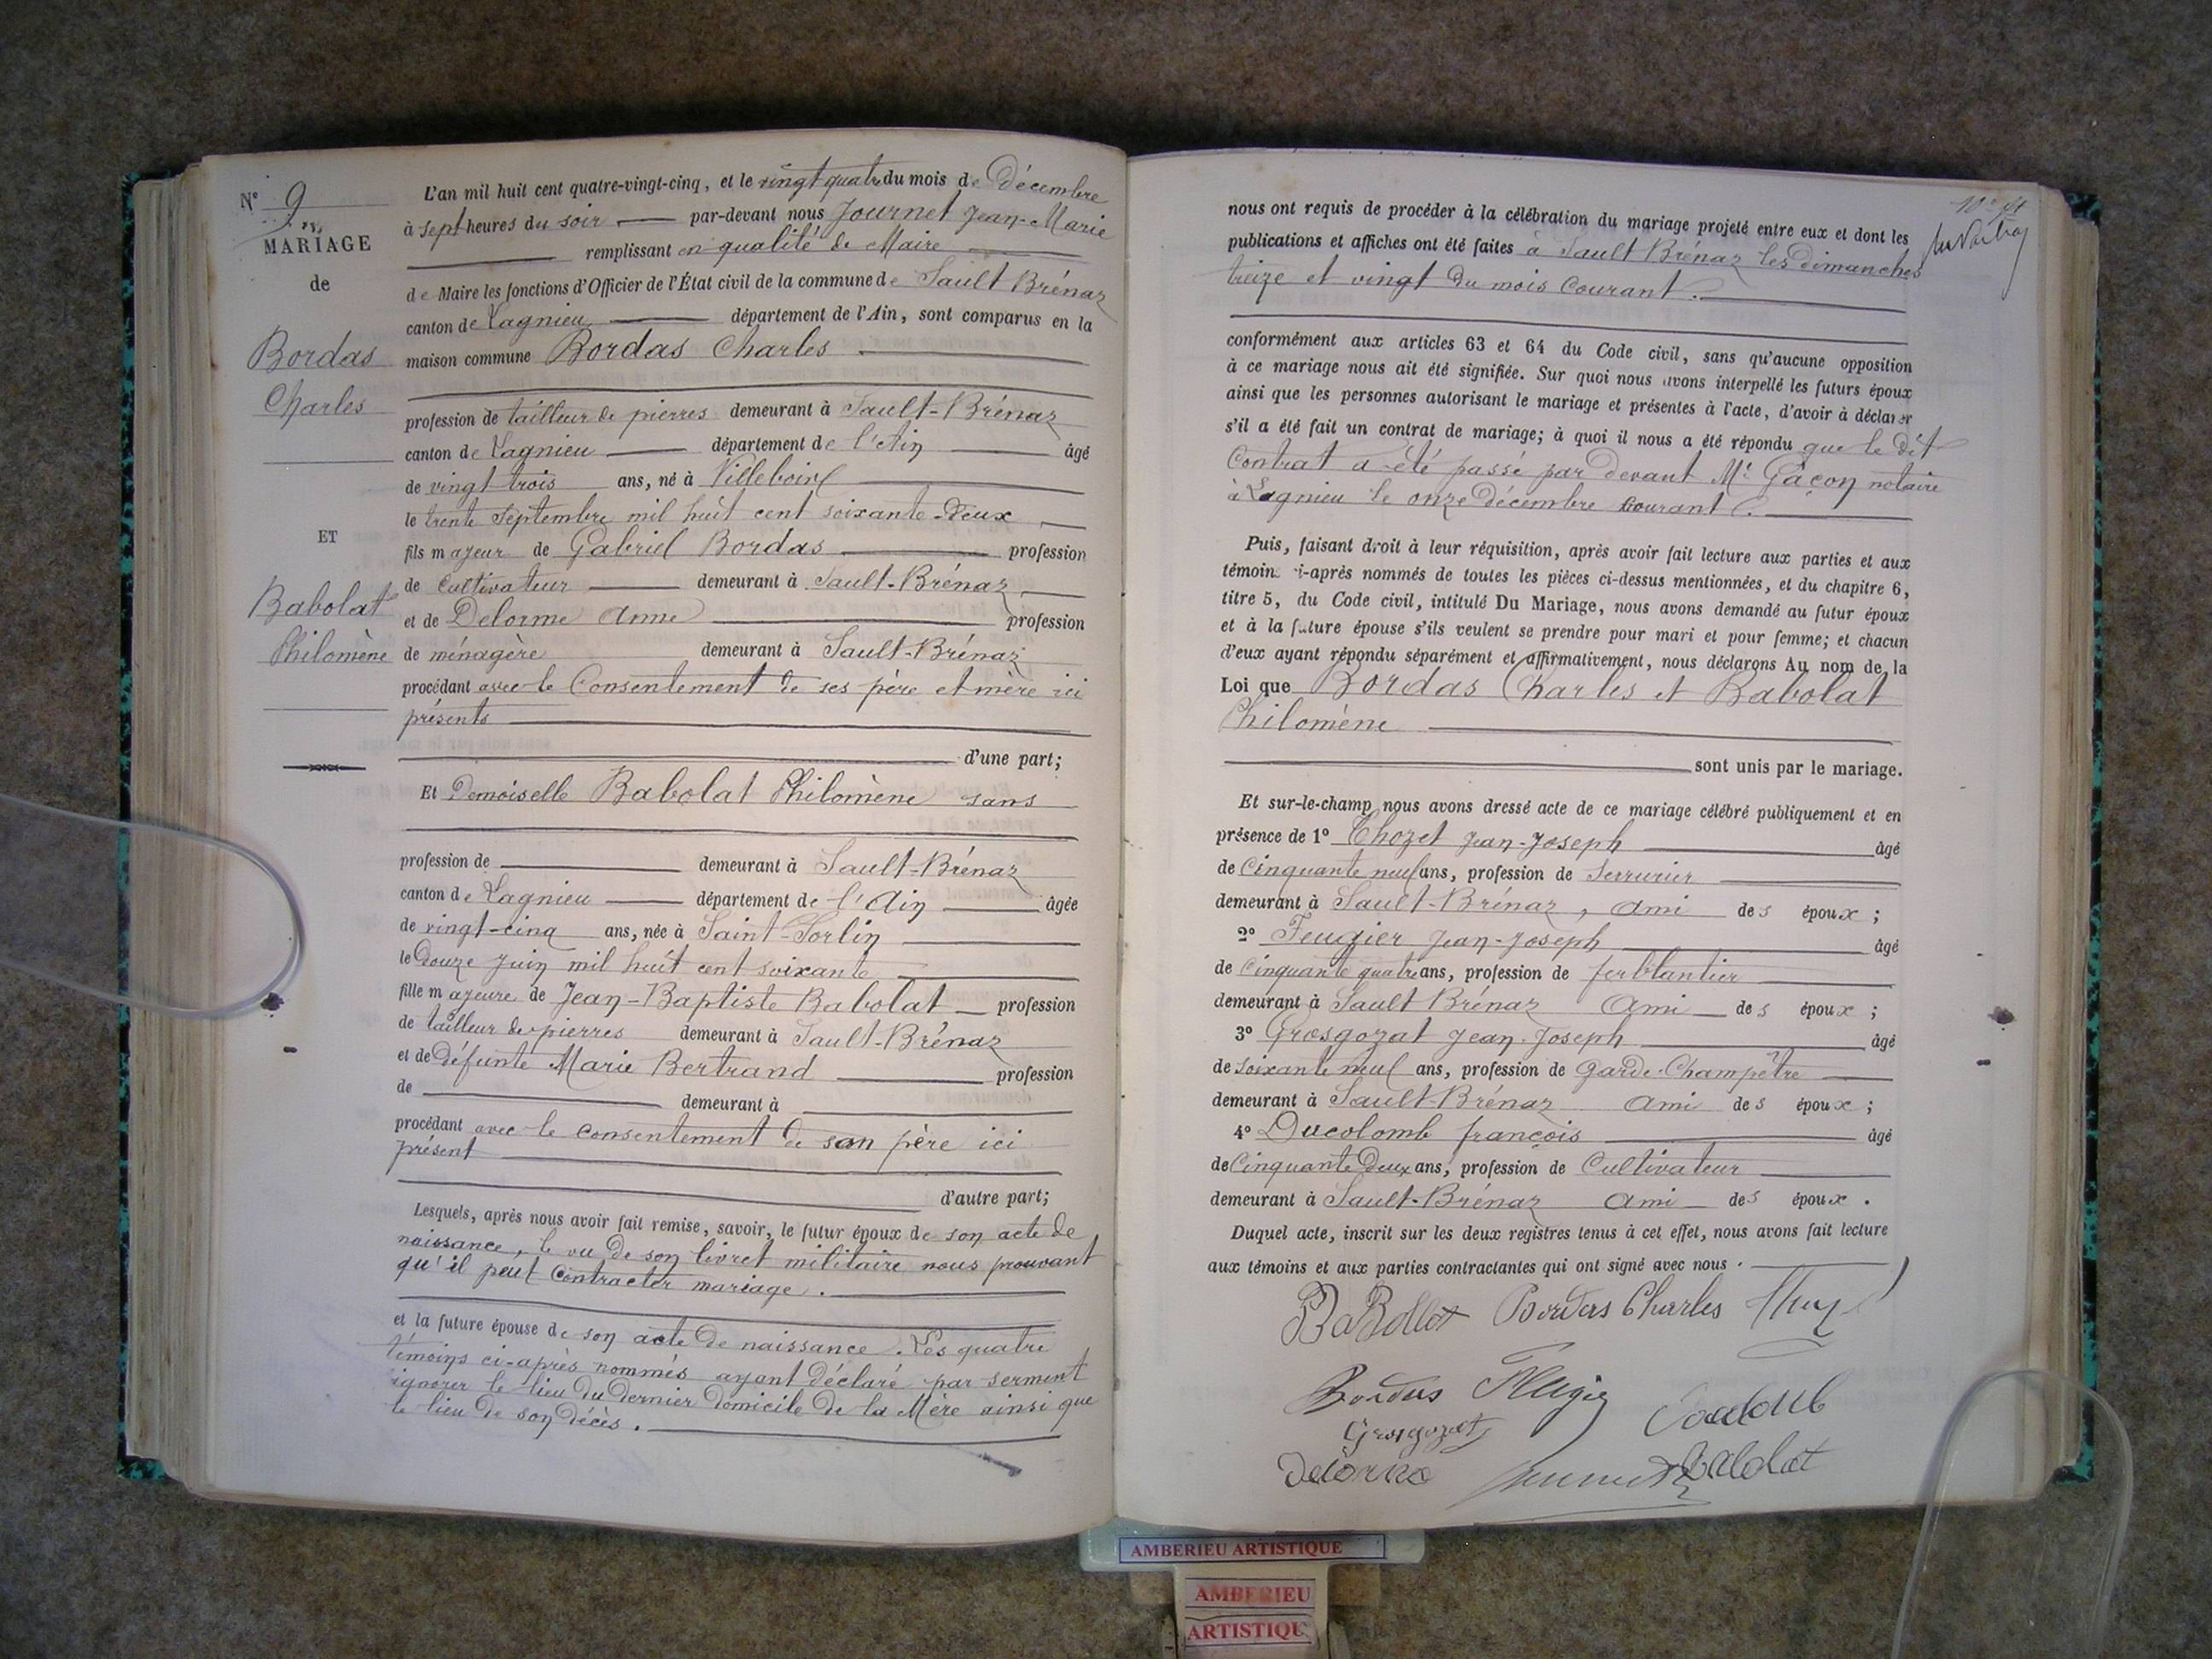 N° 9
MARIAGE
de
Bordas
Charles
ET
Babolat
Philomène
L'an mil huit cent quatre-vingt-cinq, et le vingt quatre du mois de Décembre
à sept heures du soir par-devant nous Journet Jean-Marie
remplissant en qualité de Maire
de Maire les fonctions d'Officier de l'État civil de la commune de Sault Brénaz
canton de Lagnieu département de l'Ain, sont comparus en la
maison commune Bordas Charles
profession de tailleur de pierres demeurant à Sault-Brénaz
canton de Lagnieu département de l'Ain âgé
de vingt trois ans, né à Villebois
le trente Septembre mil huit cent soixante-deux
fils majeur de Gabriel Bordas profession
de Cultivateur demeurant à Sault-Brénaz
et de Delorme Anne profession
de ménagère demeurant à Sault-Brénaz
procédant avec le Consentement de ses père et mère ici
présents
d'une part;
Et Demoiselle Babolat Philomène sans
profession de demeurant à Sault-Brénaz
canton de Lagnieu département de l'Ain âgée
de vingt-cinq ans, née à Saint-Sorlin
le Douze Juin mil huit cent soixante
fille majeure de Jean-Baptiste Babolat profession
de tailleur de pierres demeurant à Sault-Brénaz
et de défunte Marie Bertrand profession
de demeurant à
procédant avec le consentement de son père ici
présent
d'autre part;
Lesquels, après nous avoir fait remise, savoir, le futur époux de son acte de
naissance, le vu de son livret militaire nous prouvant
qu'il peut Contracter mariage.
et la future épouse de son acte de naissance. Les quatre
témoins ci-après nommés ayant déclaré par serment
ignorer le lieu du dernier domicile de la Mère ainsi que
le lieu de son décès.
nous ont requis de procéder à la célébration du mariage projeté entre eux et dont les
publications et affiches ont été faites à Sault Brénaz les dimanches
treize et vingt du mois Courant.
conformément aux articles 63 et 64 du Code civil, sans qu'aucune opposition
à ce mariage nous ait été signifiée. Sur quoi nous avons interpellé les futurs époux
ainsi que les personnes autorisant le mariage et présentes à l'acte, d'avoir à déclarer
s'il a été fait un contrat de mariage; à quoi il nous a été répondu que le dit
Contrat a été passé par devant Me Gacon notaire
à Lagnieu le onze décembre Courant.
Puis, faisant droit à leur réquisition, après avoir fait lecture aux parties et aux
témoins ci-après nommés de toutes les pièces ci-dessus mentionnées, et du chapitre 6,
titre 5, du Code civil, intitulé Du Mariage, nous avons demandé au futur époux
et à la future épouse s'ils veulent se prendre pour mari et pour femme; et chacun
d'eux ayant répondu séparément et affirmativement, nous déclarons Au nom de la
Loi que Bordas Charles et Babolat
Philomène
sont unis par le mariage.
Et sur-le-champ nous avons dressé acte de ce mariage célébré publiquement et en
présence de 1° Chozet Jean-Joseph âgé
de Cinquante neuf ans, profession de Serrurier
demeurant à Sault-Brénaz, ami des époux;
2° Feugier Jean-Joseph âgé
de Cinquante quatre ans, profession de ferblantier
demeurant à Sault Brénaz Ami des époux;
3° Grosgozat Jean-Joseph âgé
de soixante neuf ans, profession de Garde-Champêtre
demeurant à Sault-Brénaz ami des époux;
4° Ducolomb françois âgé
de Cinquante Deux ans, profession de Cultivateur
demeurant à Sault-Brénaz Ami des époux.
Duquel acte, inscrit sur les deux registres tenus à cet effet, nous avons fait lecture
aux témoins et aux parties contractantes qui ont signé avec nous.
BaBollat Bordas Charles
Bordas
Grosgozat
Delorme Babolat
AMBERIEU ARTISTIQUE
AMBERIEU
ARTISTIQU